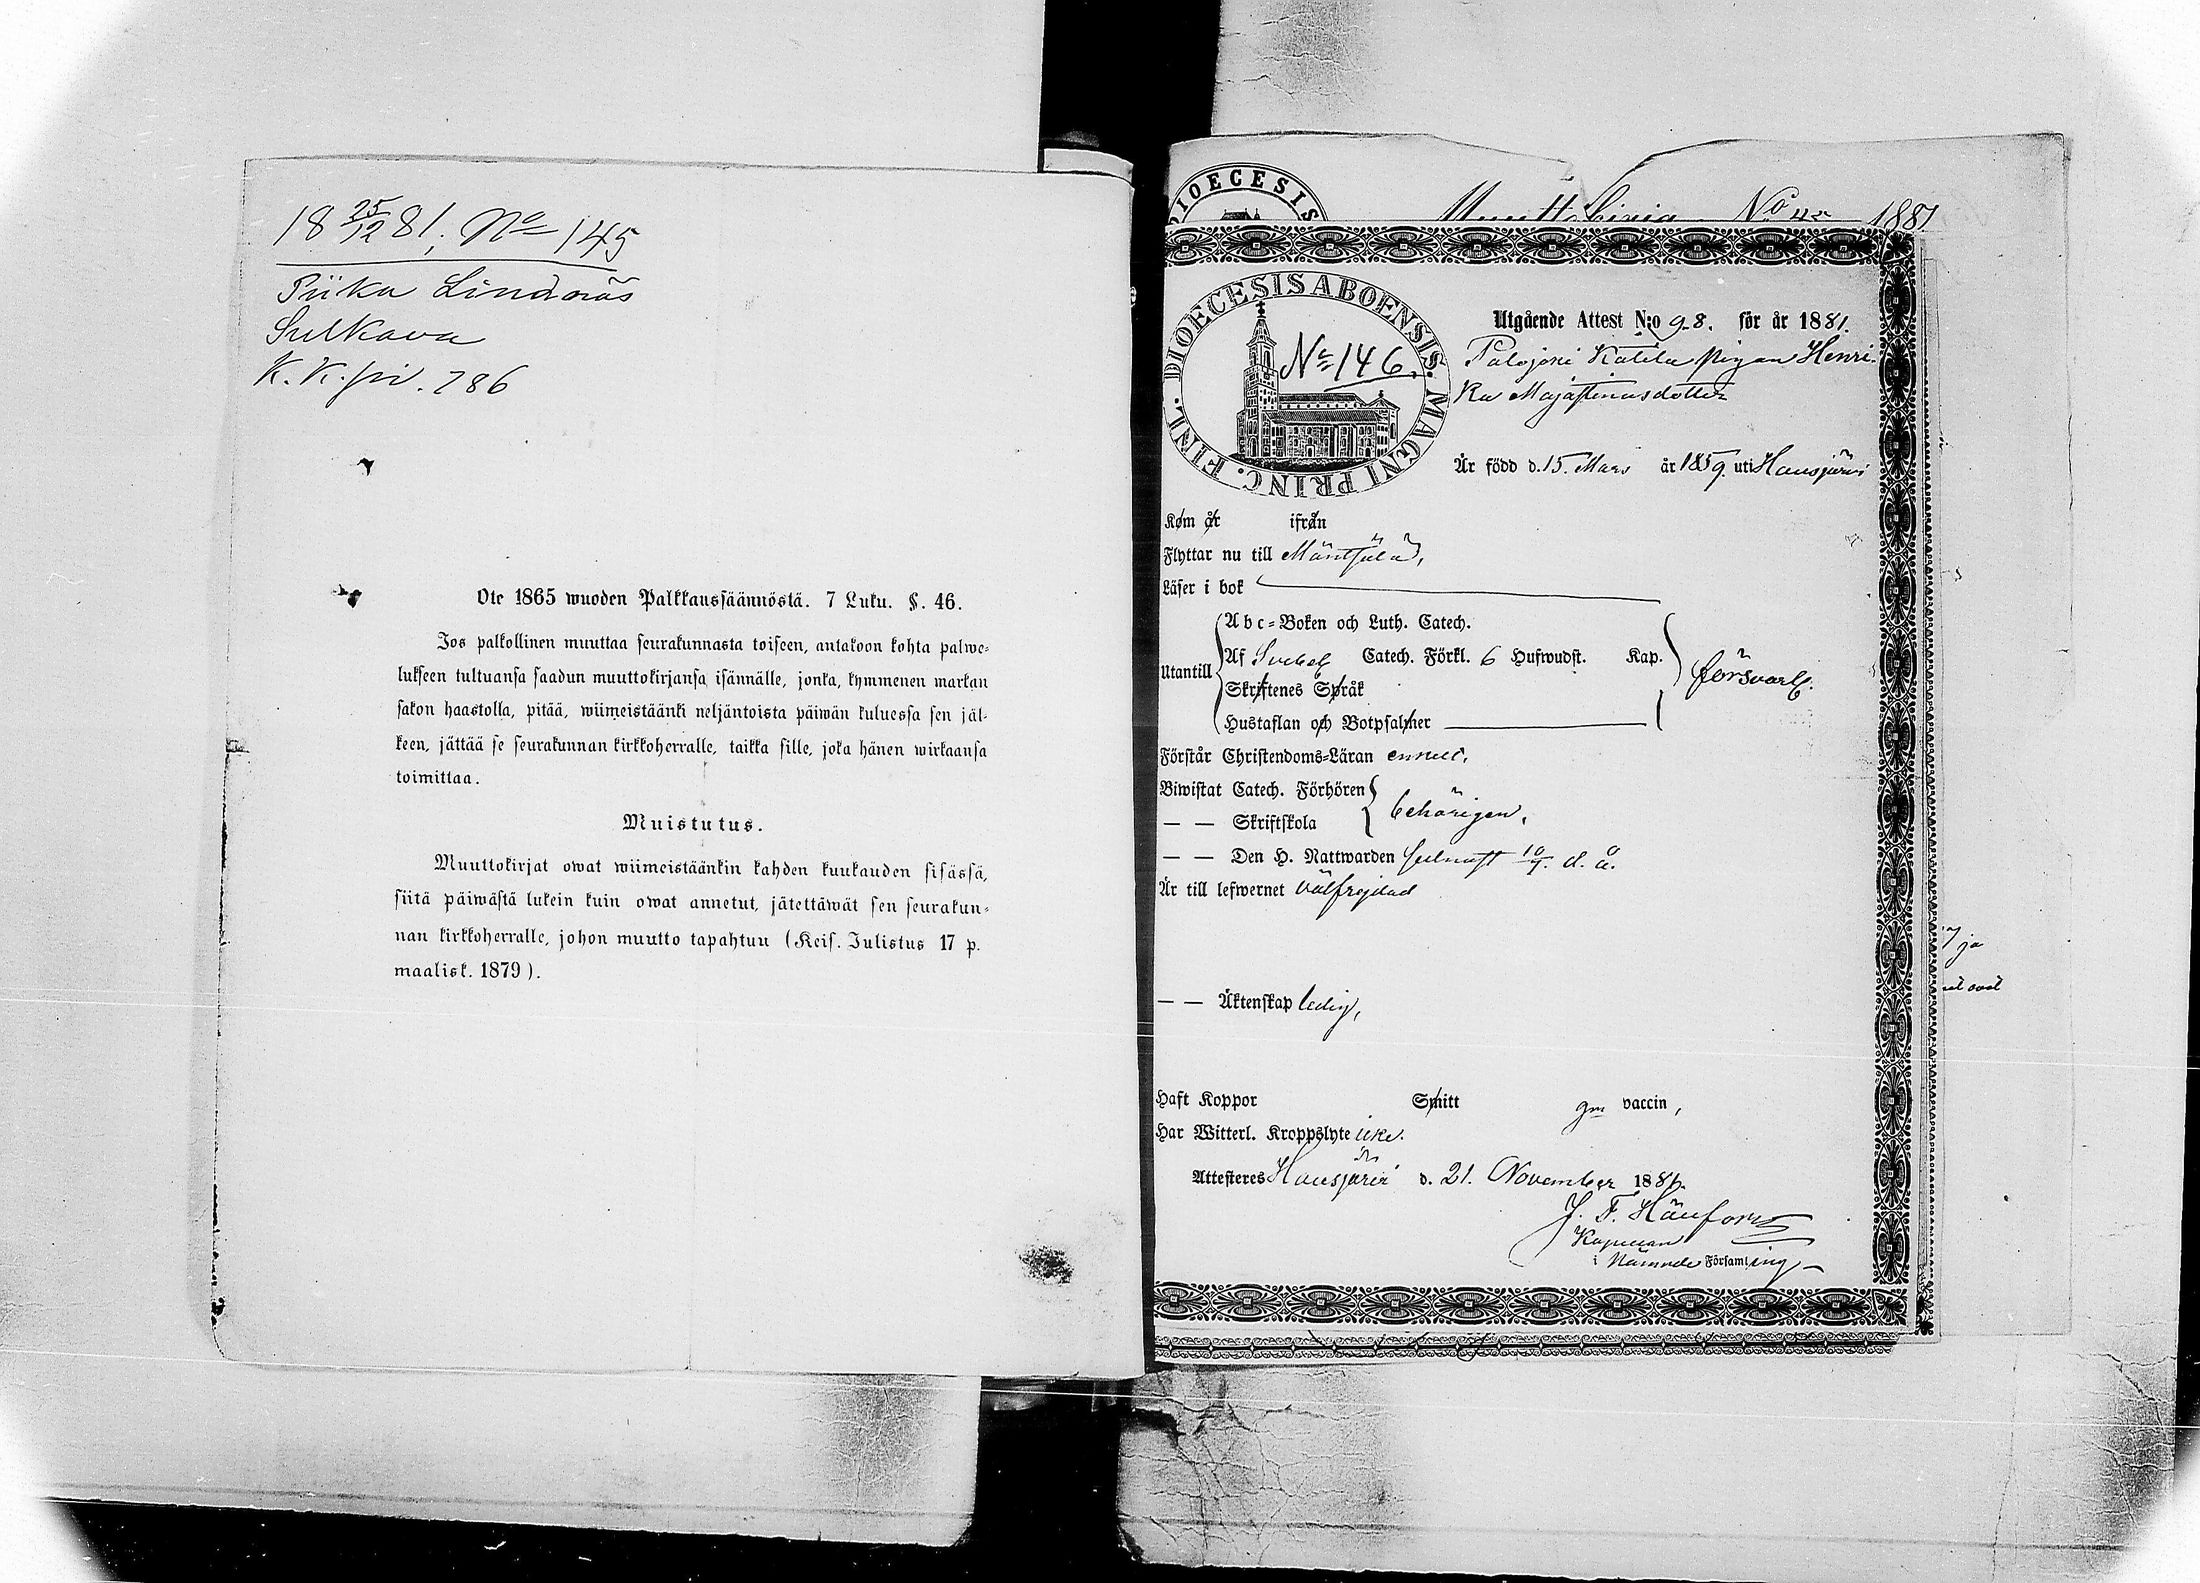 18 25/12 81, No 145
Piika Lindroos
Sulkava
K. K. siv. 786
Ote 1865 wuoden Palkkaussäännöstä. 7 Luku. §. 46.
Jos palkollinen muuttaa seurakunnasta toiseen, antakoon kohta palwe-
lukseen tultuansa saadun muuttokirjansa isännälle, jonka, kymmenen markan
sakon haastolla, pitää, wiimeistäänki neljäntoista päiwän kuluessa sen jäl-
keen, jättää se seurakunnan kirkkoherralle, taikka sille, joka hänen wirkaansa
toimittaa.
Muistutus.
Muuttokirjat owat wiimeistäänkin kahden kuukauden sisässä,
siitä päiwästä lukein kuin owat annetut, jätettäwät sen seurakun-
nan kirkkoherralle, johon muutto tapahtuu (Keis. Julistus 17 p.
maalisk. 1879).
DIOECESIS
Muuttokirja No 1881
DIOECESIS ABOENSIS. MAGNI PRINC. FINL.
No 146.
Utgående Attest N:o 98. för år 1881.
Palojoki Katila pigan Henri-
ka Majastinasdotter
Är född d. 15. Mars år 1859. uti Hausjärvi
Kom år ifrån
Flyttar nu till Mäntsälä,
Läser i bok
Utantill
Abc-Boken och Luth. Catech.
Af Svebel. Catech. Förkl. 6 Hufwudst. Kap.
Skriftenes Språk
Hustaflan och Botpsalmer
försvarl.
Förstår Christendoms-Läran enkelt.
Biwistat Catech. Förhören
— — Skriftskola
behörigen.
— — Den H. Nattwarden senast 10/7. d. å.
Är till lefwernet välfrejdad
— — Äktenskap ledig,
Haft Koppor Smitt gm vaccin,
Har Witterl. Kroppslyte icke.
Attesteres Hausjärvi d. 21. November 1881.
J. F. Hänfors
Kapellan
i Nämnde Församling
ja